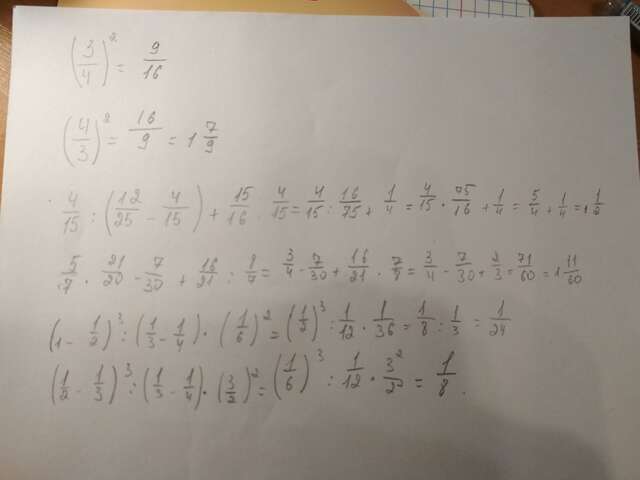 (3/4)² = 9/16
(4/3)² = 16/9 = 1 7/9
4/15 : (12/25 - 4/15) + 15/16 · 4/15 = 4/15 : 16/75 + 1/4 = 4/15 · 75/16 + 1/4 = 5/4 + 1/4 = 1 1/2
5/7 · 21/20 - 7/30 + 16/21 : 8/7 = 3/4 - 7/30 + 16/21 · 7/8 = 3/4 - 7/30 + 2/3 = 71/60 = 1 11/60
(1 - 1/2)³ : (1/3 - 1/4) · (1/6)² = (1/2)³ : 1/12 · 1/36 = 1/8 : 1/3 = 1/24
(1/2 - 1/3)³ : (1/3 - 1/4) · (3/2)² = (1/6)³ : 1/12 · 3²/2 = 1/8.